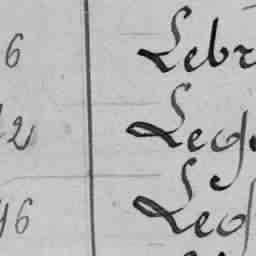 6 Lebr
2 Lege
6 Leg